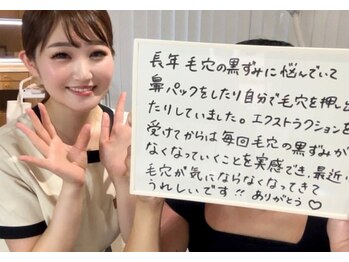 長年毛穴の黒ずみに悩んでいて
鼻パックをしたり自分で毛穴を押し出
たりしていました。エクストラクションを
受けてからは毎回毛穴の黒ずみが
なくなっていくことを実感でき、最近
毛穴が気にならなくなってきて
うれしいです!! ありがとう♡